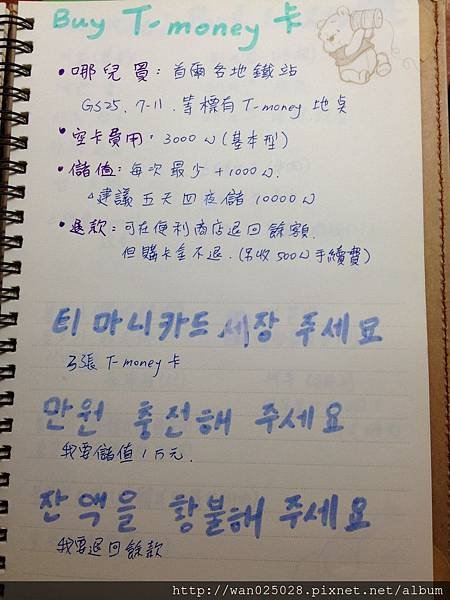 Buy T-money 卡
• 哪兒買：首爾各地鐵站
GS25、7-11、等標有 T-money 地点
• 空卡費用：3000₩(基本型)
• 儲值：每次最少 +1000₩.
△建議 五天四夜儲 10000₩
• 退款：可在便利商店退回餘額.
但購卡金不退.(另收500₩手續費)
티 마니카드 세장 주세요
3張 T-money 卡
만원 충전해 주세요
我要儲值1万元.
잔액을 황불해 주세요
我要退回餘款
http://wan025028.pixnet.net/album